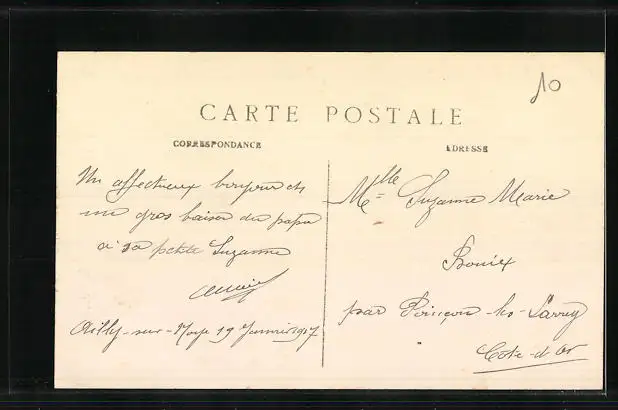 10
CARTE POSTALE
CORRESPONDANCE
ADRESSE
Un affectueux bonjour et
un gros baiser du papa
à sa petite Suzanne
Ailly-sur-Noye 19 Janvier 1917
Mlle Suzanne Marie
Bouix
par Poinçon-les-Larrey
Côte-d'Or